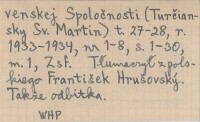 venskej Spoločnosti (Turčian-
sky Sv. Martin) t. 27-28, r.
1933-1934, nr 1-8, s. 1-30,
m. 1, Zsf. Tłumaczył z pols-
kiego František Hrušovský.
Także odbitka.
WHP